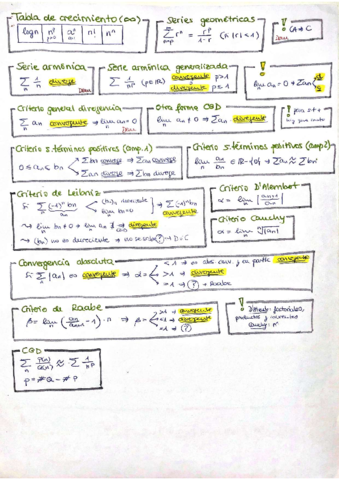 Tabla de crecimiento (∞)
logn | n^p p>0 | a^n a>1 | n! | n^n
Series geométricas
∑ r^n = r^p / 1-r (Si |r|<1)
!
Serie armónica
∑ 1/n diverge
Serie armónica generalizada
∑ 1/n^p (p∈ℝ) convergente p>1
divergente p≤1
!
lim an = 0
Criterio general divergencia
∑ an convergente → lim an = 0
Otra forme CGD
lim an ≠ 0 → ∑an divergente
!
Criterio s.términos positivos (comp.1)
0 ≤ an ≤ bn
∑bn converge → ∑an converge
∑an diverge → ∑bn diverge
Criterio s.términos positivos (comp2)
lim an/bn ∈ ℝ-{0} → ∑an ≈ ∑bn
Criterio de Leibniz
Si ∑ (-1)^n bn
lim bn = 0
∑(-1)^n bn convergente
→ lim bn ≠ 0 → divergente
→ (bn) no es decreciente → no se sabe
Criterio D'Alembert
α = lim |an+1/an|
Criterio Cauchy
α = lim ⁿ√|an|
Convergencia absoluta
Si ∑ |an| es convergente → α =
<1 → es abs conv. convergente
>1 → divergente
=1 → (?) → Raabe
Criterio de Raabe
β = lim (an/an+1 - 1) · n → β =
>1 → convergente
<1 → divergente
=1 → (?)
!
Cauchy: n^n
CGD
∑ P(n)/Q(n) ≈ ∑ 1/n^p
p = #Q - #P